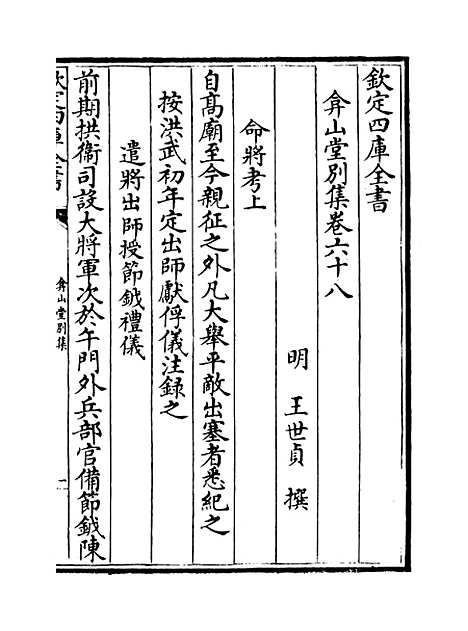 欽定四庫全書
弇山堂別集卷六十八
明 王世貞 撰
命將考上
自高廟至今親征之外凡大舉平敵出塞者悉紀之
按洪武初年定出師獻俘儀注録之
遣將出師授節鉞禮儀
前期拱衞司設大將軍次於午門外兵部官備節鉞陳
欽定四庫全書
弇山堂別集
一